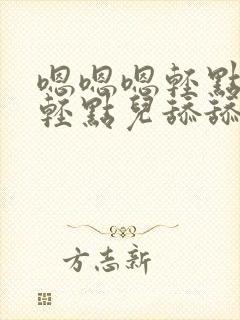 嗯嗯嗯輕點
輕點兒舔舔
方志新